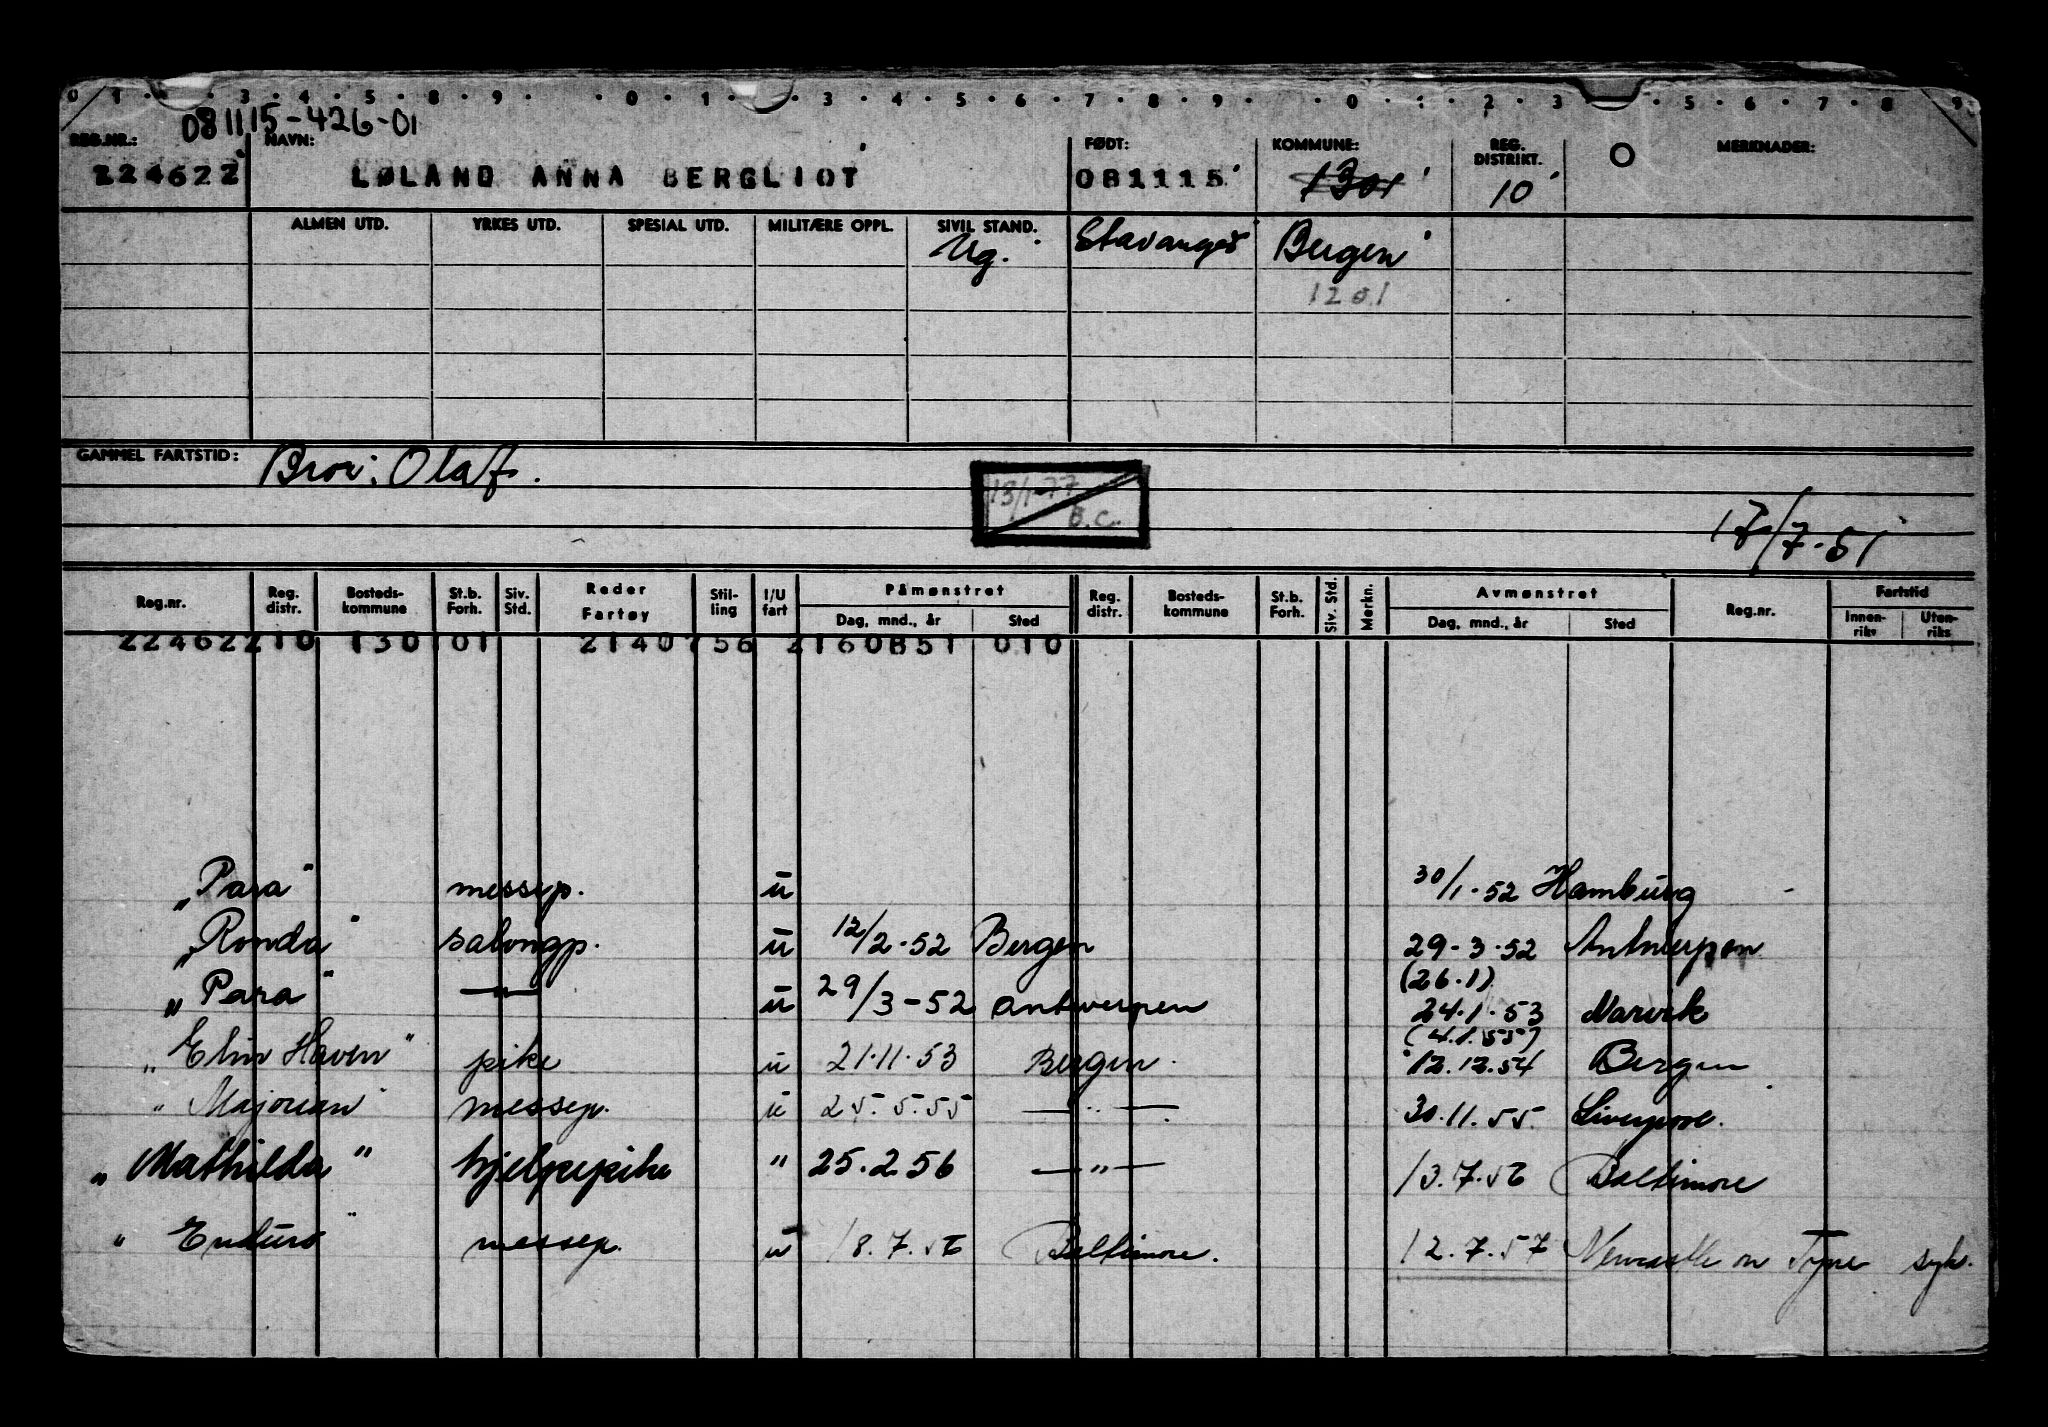 0 1 · 3 · 4 · 5 · 8 · 9 · · 0 · 1 · · 3 · 4 · 5 · 6 · 7 · 8 · 9 · · 0 · 1 · 2 · 3 · 5 · 6 · 7 · 8 9
081115-426-01
REG.NR.: NAVN: FØDT: KOMMUNE: REG. DISTRIKT. MERKNADER:
224622 LØLAND ANNA BERGLIOT 081115 1301 10
ALMEN UTD. YRKES UTD. SPESIAL UTD. MILITÆRE OPPL. SIVIL STAND.
Ug. Stavanger Bergen
1201
GAMMEL FARTSTID: Bror: Olaf.
13/1-77
B.C.
17/7-51
Reg.nr. Reg. distr. Bosteds- kommune St.b. Forh. Siv. Std. Reder Fartøy Stil- ling I/U fart Påmønstret Dag, mnd., år Sted Reg. distr. Bosteds- kommune St.b. Forh. Siv. Std. Merkn. Avmønstret Dag, mnd., år Sted Reg.nr. Fartstid Innen- riks Uten- riks
22462210 130 01 2140756 2160851 010
"Para" messep. u 30/1-52 Hamburg
"Ronda" salongp. u 12/2-52 Bergen 29-3-52 Antwerpen
(26.1)
"Para" —"— u 29/3-52 Antwerpen 24.1.53 Narvik
(4.1.55)
"Elin Haven" pike u 21.11.53 Bergen 12.12.54 Bergen
"Majorian" messep. u 25.5.55 —"— 30.11.55 Liverpool.
"Mathilda" hjelpepike " 25.2 56 —"— 13.7.56 Baltimore
"Enduro" messep. u 18.7.56 Baltimore. 12.7.57 Newcastle on Tyne syk.